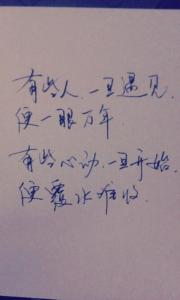 有些人,一旦遇见,
便一眼万年.
有些心动,一旦开始,
便覆水难收.